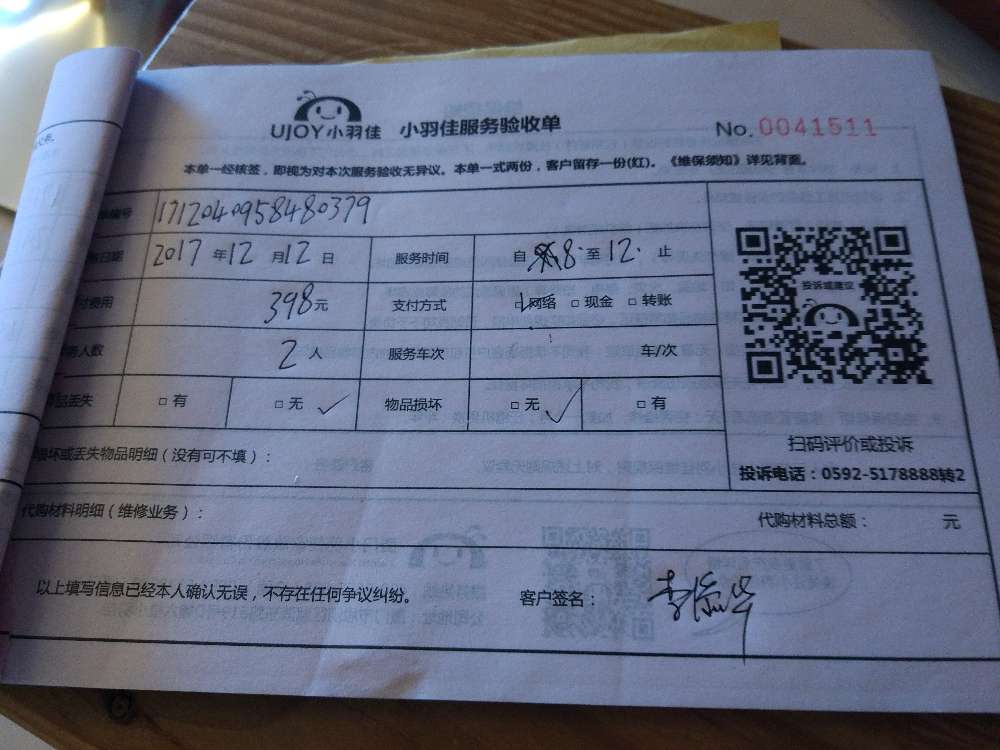 UJOY小羽佳 小羽佳服务验收单 No.0041511
本单一经核签,即视为对本次服务验收无异议。本单一式两份,客户留存一份(红)。《维保须知》详见背面。
编号 1712040958480379
日期 2017年12月12日 服务时间 自8:至12:止
费用 398元 支付方式 □网络 □现金 □转账
人数 2人 服务车次 车/次
品丢失 □有 □无 ✓ 物品损坏 □无 ✓ □有
投诉或建议
扫码评价或投诉
投诉电话:0592-5178888转2
损坏或丢失物品明细(没有可不填):
代购材料明细(维修业务): 代购材料总额: 元
以上填写信息已经本人确认无误,不存在任何争议纠纷。 客户签名: